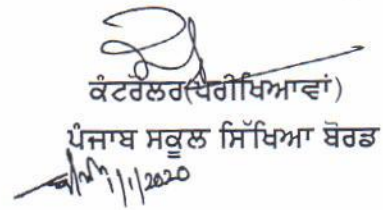 ਕੰਟਰੋਲਰ(ਪਰੀਖਿਆਵਾਂ)
ਪੰਜਾਬ ਸਕੂਲ ਸਿੱਖਿਆ ਬੋਰਡ
1/1/2020